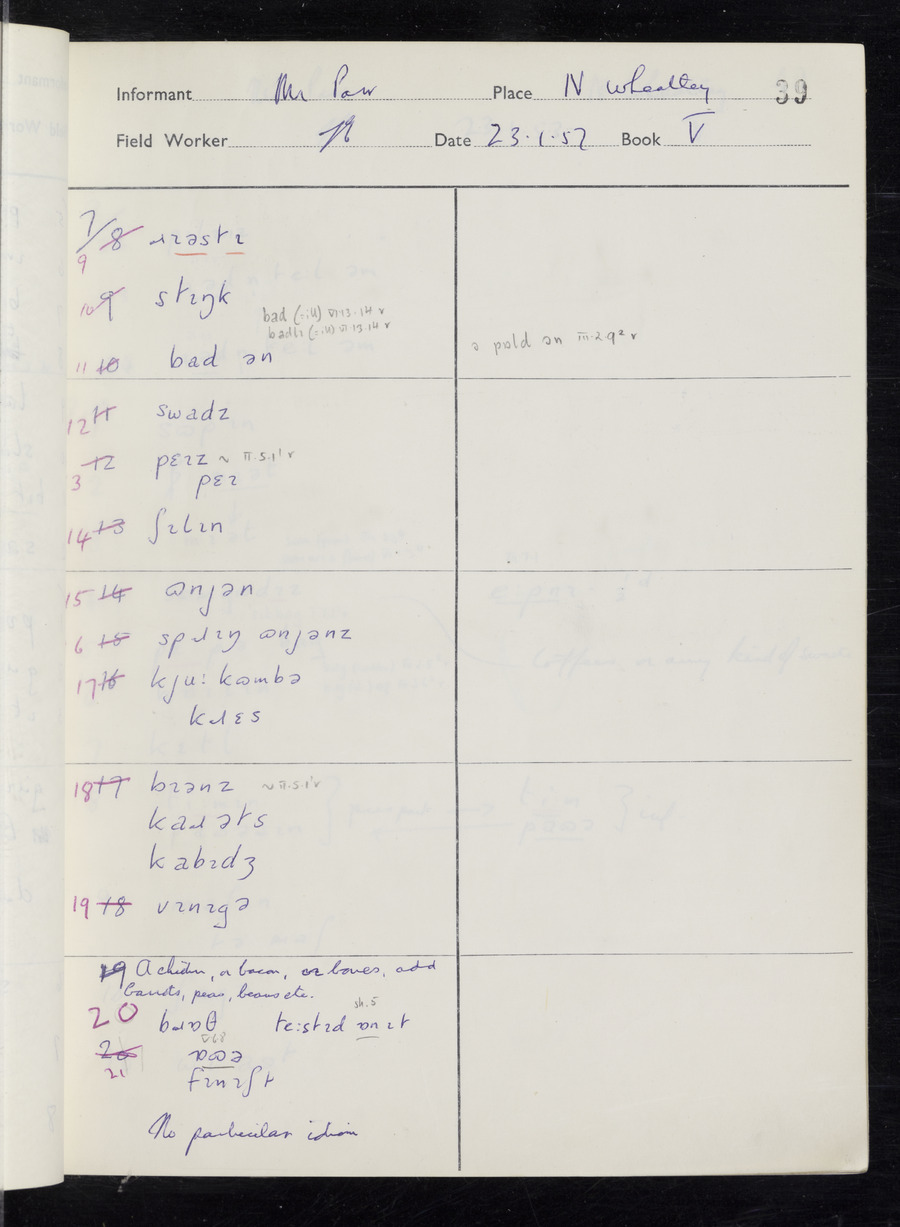 Informant Mr Place N Wheatley 39
Field Worker Date 23.1.57 Book V
7/8 ɹɪəstɪ
9
10 9 stɪŋk
bad (=ill) VI.13.14 v
badlɪ (=ill) VI.13.14 v
11 10 bad ən
ə pɒld ən III.2.9² v
12 11 swadz
3 12 pɛɪz ~ II.5.1¹ v
pɛɪ
14 13 ʃɪlɪn
15 14 ɷnjən
6 15 spɹɪŋ ɷnjənz
17 16 kjuːkɷmbə
kɹɛs
18 17 bɪənz ~ II.5.1¹ v
kaɹəts
kabɪdʒ
19 18 vɪnɪgə
19 A chicken, or bacon, or bones, add
carrots, peas, beans etc.
20 bɹɒθ teːstɪd ɒn ɪt
sh. 5
20
21
fɪnɪʃt
No particular idiom